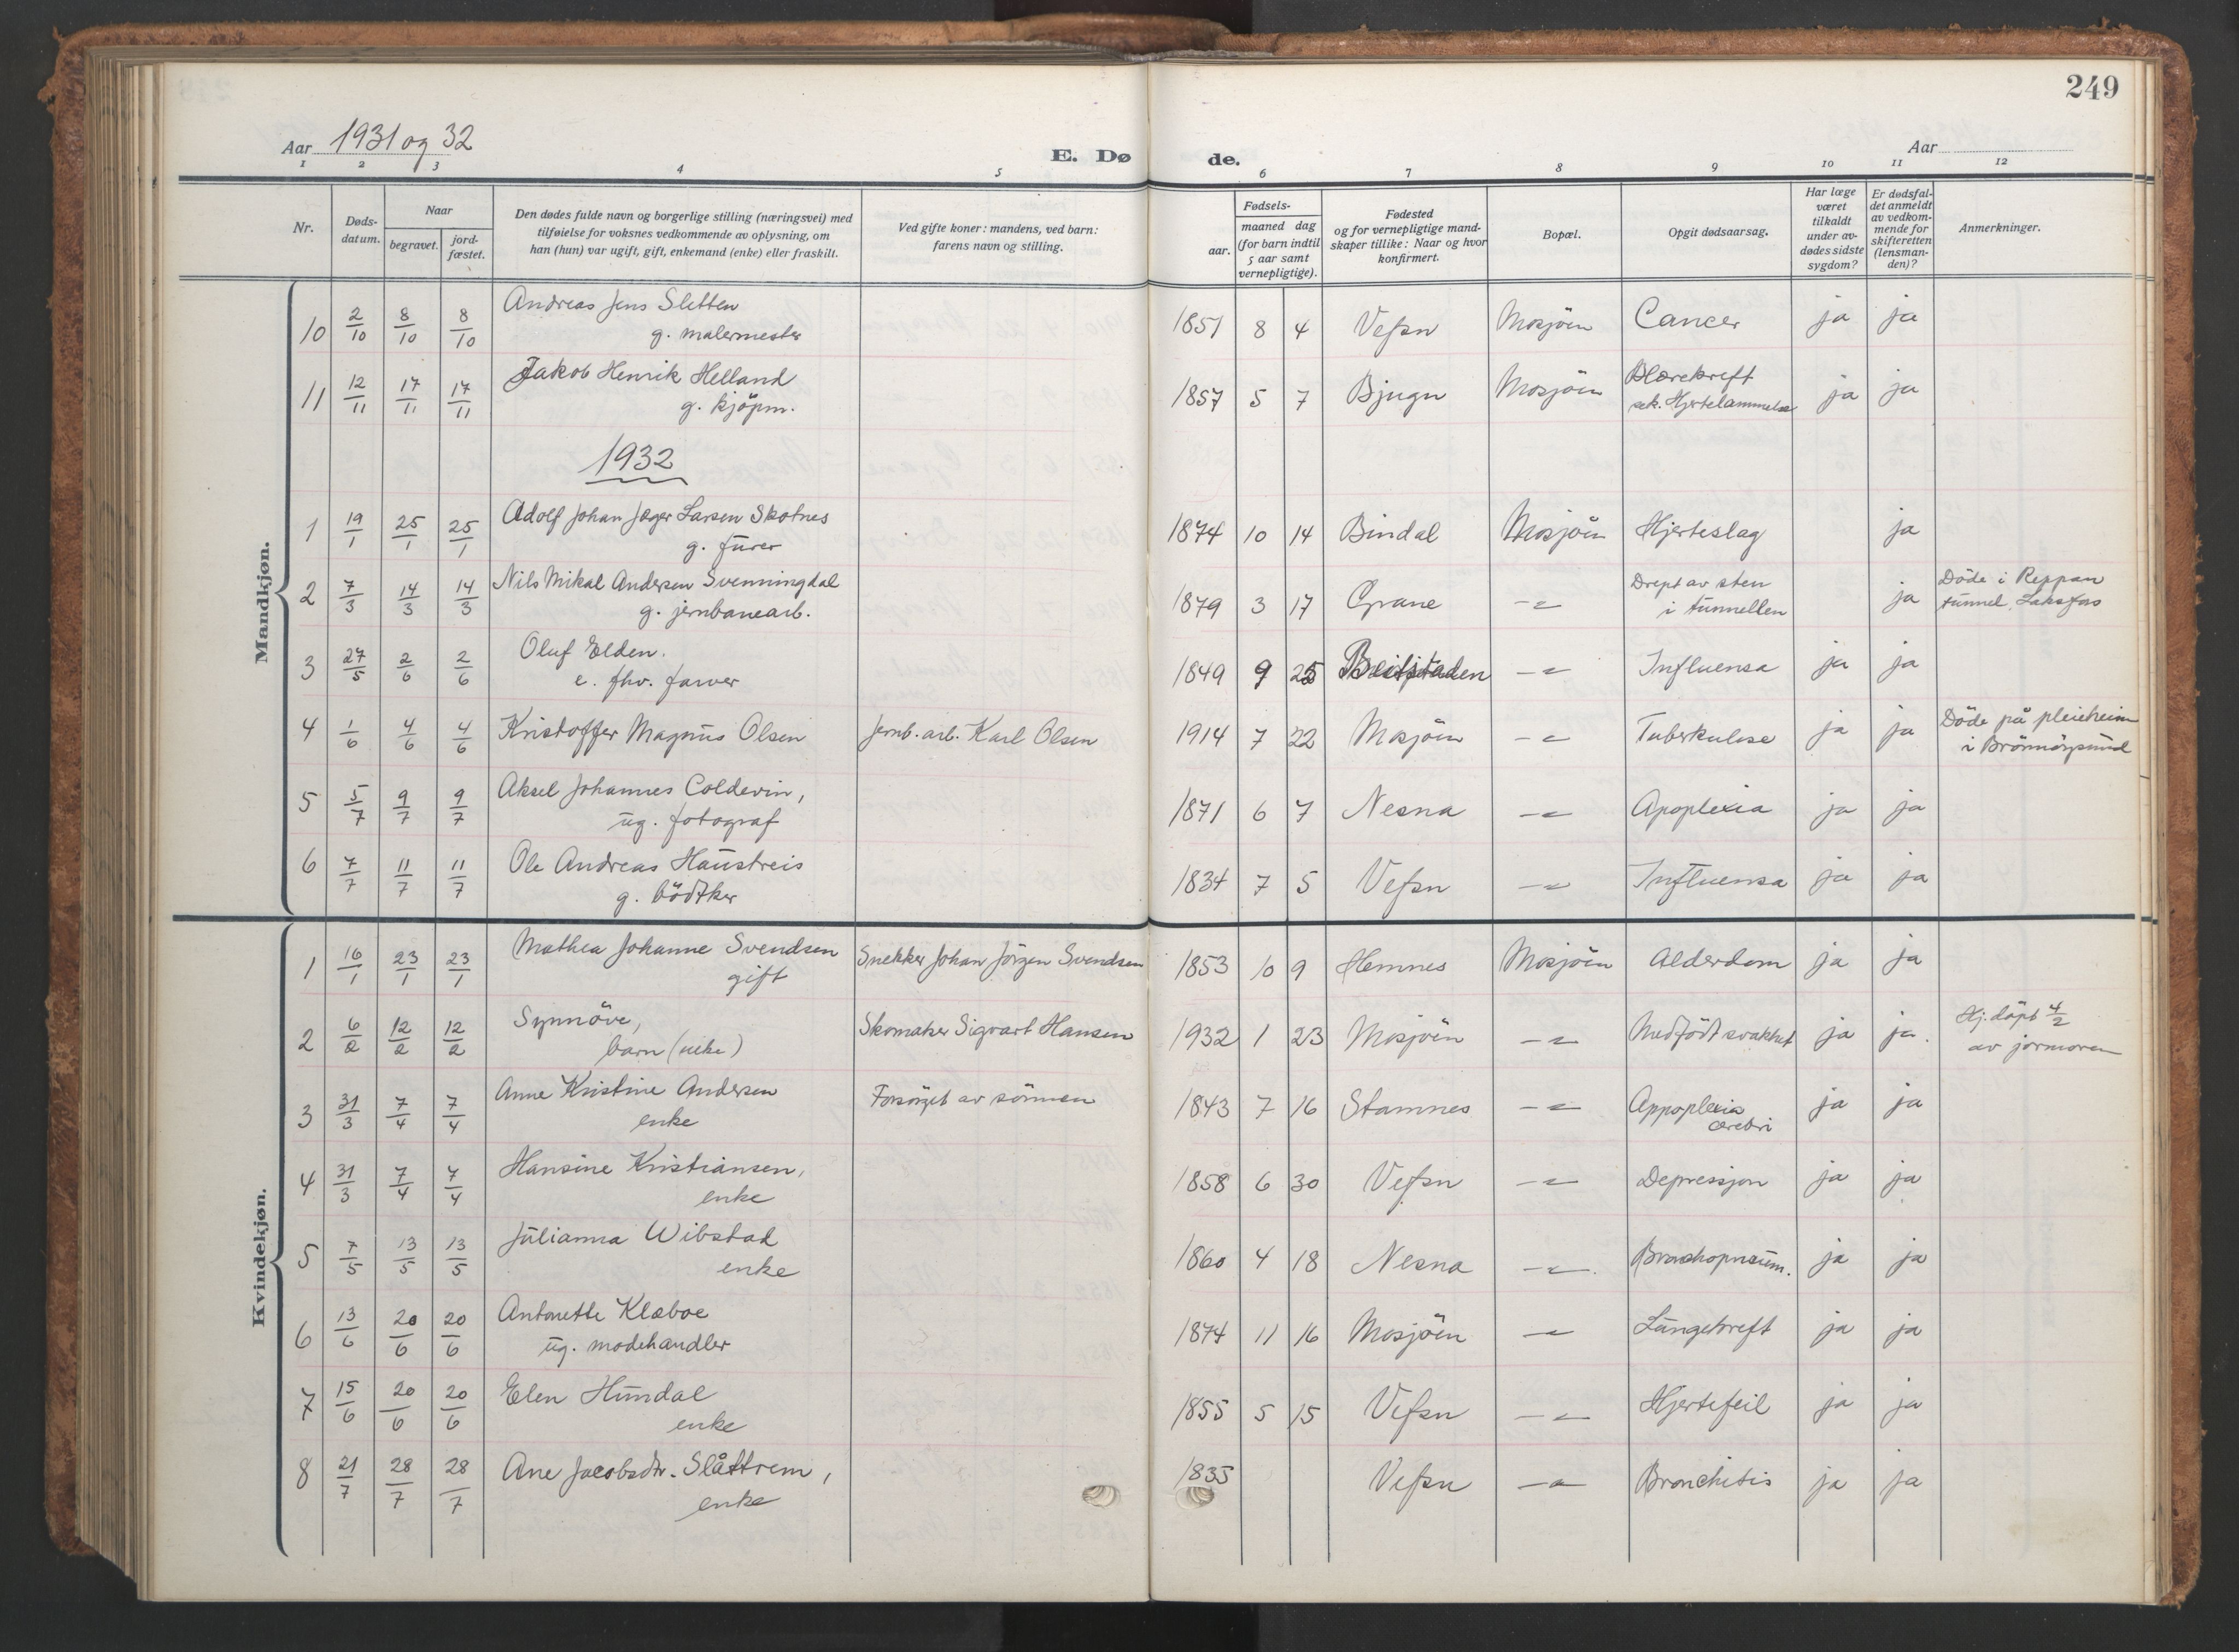 249
Aar 1931 og 32
E. Dø de.
Aar
1 2 3 4 5 6 7 8 9 10 11 12
Nr.
Døds-datum.
Naar
begravet.
jord-fæstet.
Den dødes fulde navn og borgerlige stilling (næringsvei) med
tilføielse for voksnes vedkommende av oplysning, om
han (hun) var ugift, gift, enkemand (enke) eller fraskilt.
Ved gifte koner: mandens, ved barn:
farens navn og stilling.
Fødsels-
aar.
maaned dag
(for barn indtil
5 aar samt
vernepligtige).
Fødested
og for vernepligtige mand-
skaper tillike: Naar og hvor
konfirmert.
Bopæl.
Opgit dødsaarsag.
Har læge
været
tilkaldt
under av-
dødes sidste
sygdom?
Er dødsfal-
det anmeldt
av vedkom-
mende for
skifteretten
(lensman-
den)?
Anmerkninger.
Mandkjøn.
10 2/10 8/10 8/10 Andreas Jens Sletten
g. malermester
1851 8 4 Vefsn Mosjöen Cancer ja ja
11 12/11 17/11 17/11 Jakob Henrik Helland
g. kjöpm.
1857 5 7 Bjugn Mosjöen Blærekreft
sek. Hjertelammelse ja ja
1932
1 19/1 25/1 25/1 Adolf Johan Jæger Larsen Skotnes
g. furer
1874 10 14 Bindal Mosjöen Hjerteslag ja
2 7/3 14/3 14/3 Nils Mikal Andersen Svenningdal
g. jernbanearb.
1879 3 17 Grane -"- Drept av sten
i tunnellen ja Döde i Reppan
tunnel, Laksfors
3 27/5 2/6 2/6 Oluf Elden.
e. fhv. farver
1849 9 25 Beitstaden -"- Influensa ja ja
4 1/6 4/6 4/6 Kristoffer Magnus Olsen Jernb. arb. Karl Olsen
1914 7 22 Mosjöen -"- Tuberkulose ja ja Döde på pleieheim
i Brönnöysund
5 5/7 9/7 9/7 Aksel Johannes Coldevin,
ug. fotograf
1871 6 7 Nesna -"- Apoplexia ja ja
6 7/7 11/7 11/7 Ole Andreas Haustreis
g. bödtker
1834 7 5 Vefsn -"- Influensa ja ja
Kvindekjøn.
1 16/1 23/1 23/1 Mathea Johanne Svendsen Snekker Johan Jörgen Svendsen
gift
1853 10 9 Hemnes Mosjöen Alderdom ja ja
2 6/2 12/2 12/2 Synnöve, Skomaker Sigvart Hansen
barn
1932 1 23 Mosjöen -"- Medfödt svakhet ja ja. Hj. döpt 4/2
av jormoren
3 31/3 7/4 7/4 Anne Kristine Andersen Forsörget av sönnen
enke
1843 7 16 Stamnes -"- Appoplexia
cerebri ja ja
4 31/3 7/4 7/4 Hansine Kristiansen,
enke
1858 6 30 Vefsn -"- Depressjon ja ja
5 7/5 13/5 13/5 Julianna Wibstad
enke
1860 4 18 Nesna -"- Bronchopneum. ja ja
6 13/6 20/6 20/6 Antonette Klæboe
ug. modehandler
1874 11 16 Mosjöen -"- Lungekreft ja ja
7 15/6 20/6 20/6 Elen Hundal
enke
1855 5 15 Vefsn -"- Hjertefeil ja ja
8 21/7 28/7 28/7 Ane Jacobsdtr. Slåttrem,
enke
1835 Vefsn -"- Bronchitis ja ja